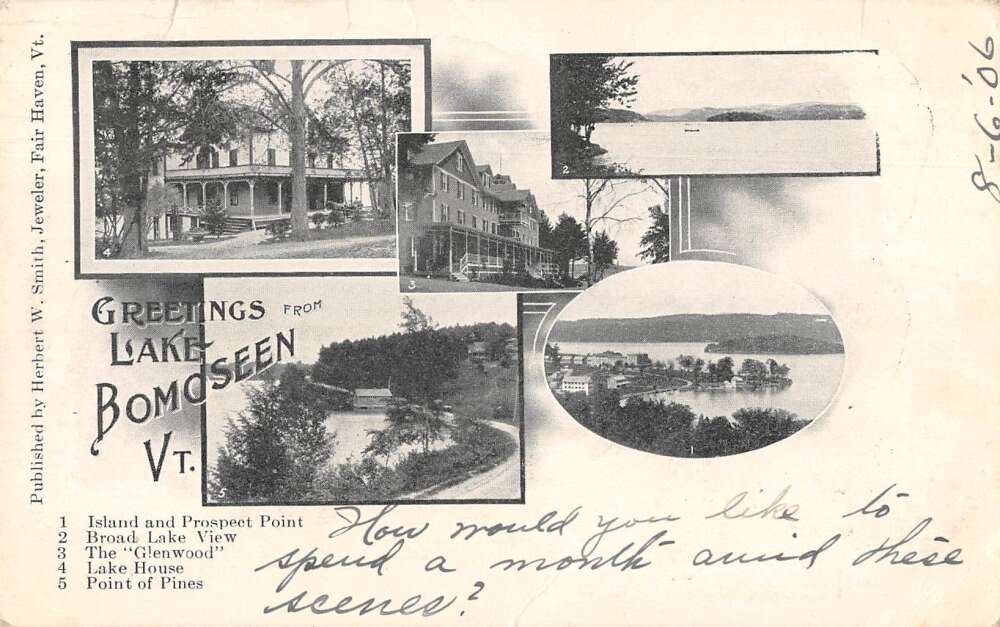 Published by Herbert W. Smith, Jeweler, Fair Haven, Vt.
8-6-'06
4
2
3
GREETINGS FROM
LAKE
BOMOSEEN
VT.
5
1
1 Island and Prospect Point
2 Broad Lake View
3 The "Glenwood"
4 Lake House
5 Point of Pines
How would you like to
spend a month amid these
scenes?